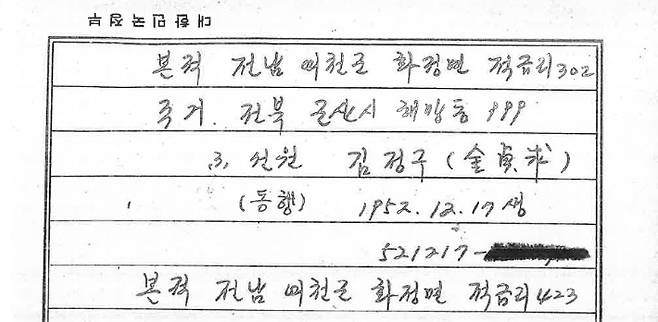 대한민국정부
본적 전남 여천군 화정면 적금리 302
주거. 전북 군산시 해망동 999
3, 선원 김정구 (金貞求)
(동행) 1952. 12. 17 생
521217-
본적 전남 여천군 화정면 적금리 423